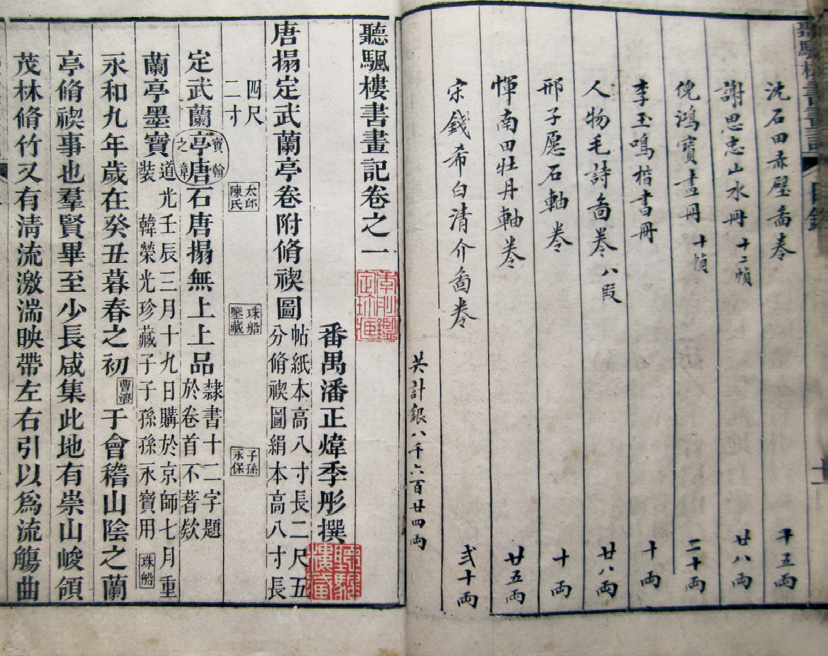 聽颿樓書畫記 目錄
沈石田赤壁啚卷 五両
謝思忠山水冊 十二幀 廿八両
倪鴻寶畫冊 十幀 二十両
李玉鳴楷書冊 十両
人物毛詩啚卷 八段 廿八両
邢子愿石軸卷 十両
惲南田牡丹軸卷 廿五両
宋錢希白清介啚卷 弍十両
共計銀八千六百廿四両
聽颿樓書畫記卷之一
番禺潘正煒季彤撰
聽颿樓藏
唐搨定武蘭亭卷附脩禊圖 帖紙本高八寸長二尺五
分脩禊圖絹本高八寸長
四尺
二寸
太邱陳氏
珠船鑒藏
子孫永保
定武蘭亭唐石唐搨無上上品 隸書十二字題
於卷首不著欵
寶翰之章
蘭亭墨寶 道光壬辰三月十九日購於京師七月重
裝 韓榮光珍藏子子孫孫永寶用 珠船
永和九年歲在癸丑暮春之初 于會稽山陰之蘭
亭脩禊事也羣賢畢至少長咸集此地有崇山峻領
茂林脩竹又有清流激湍映帶左右引以爲流觴曲